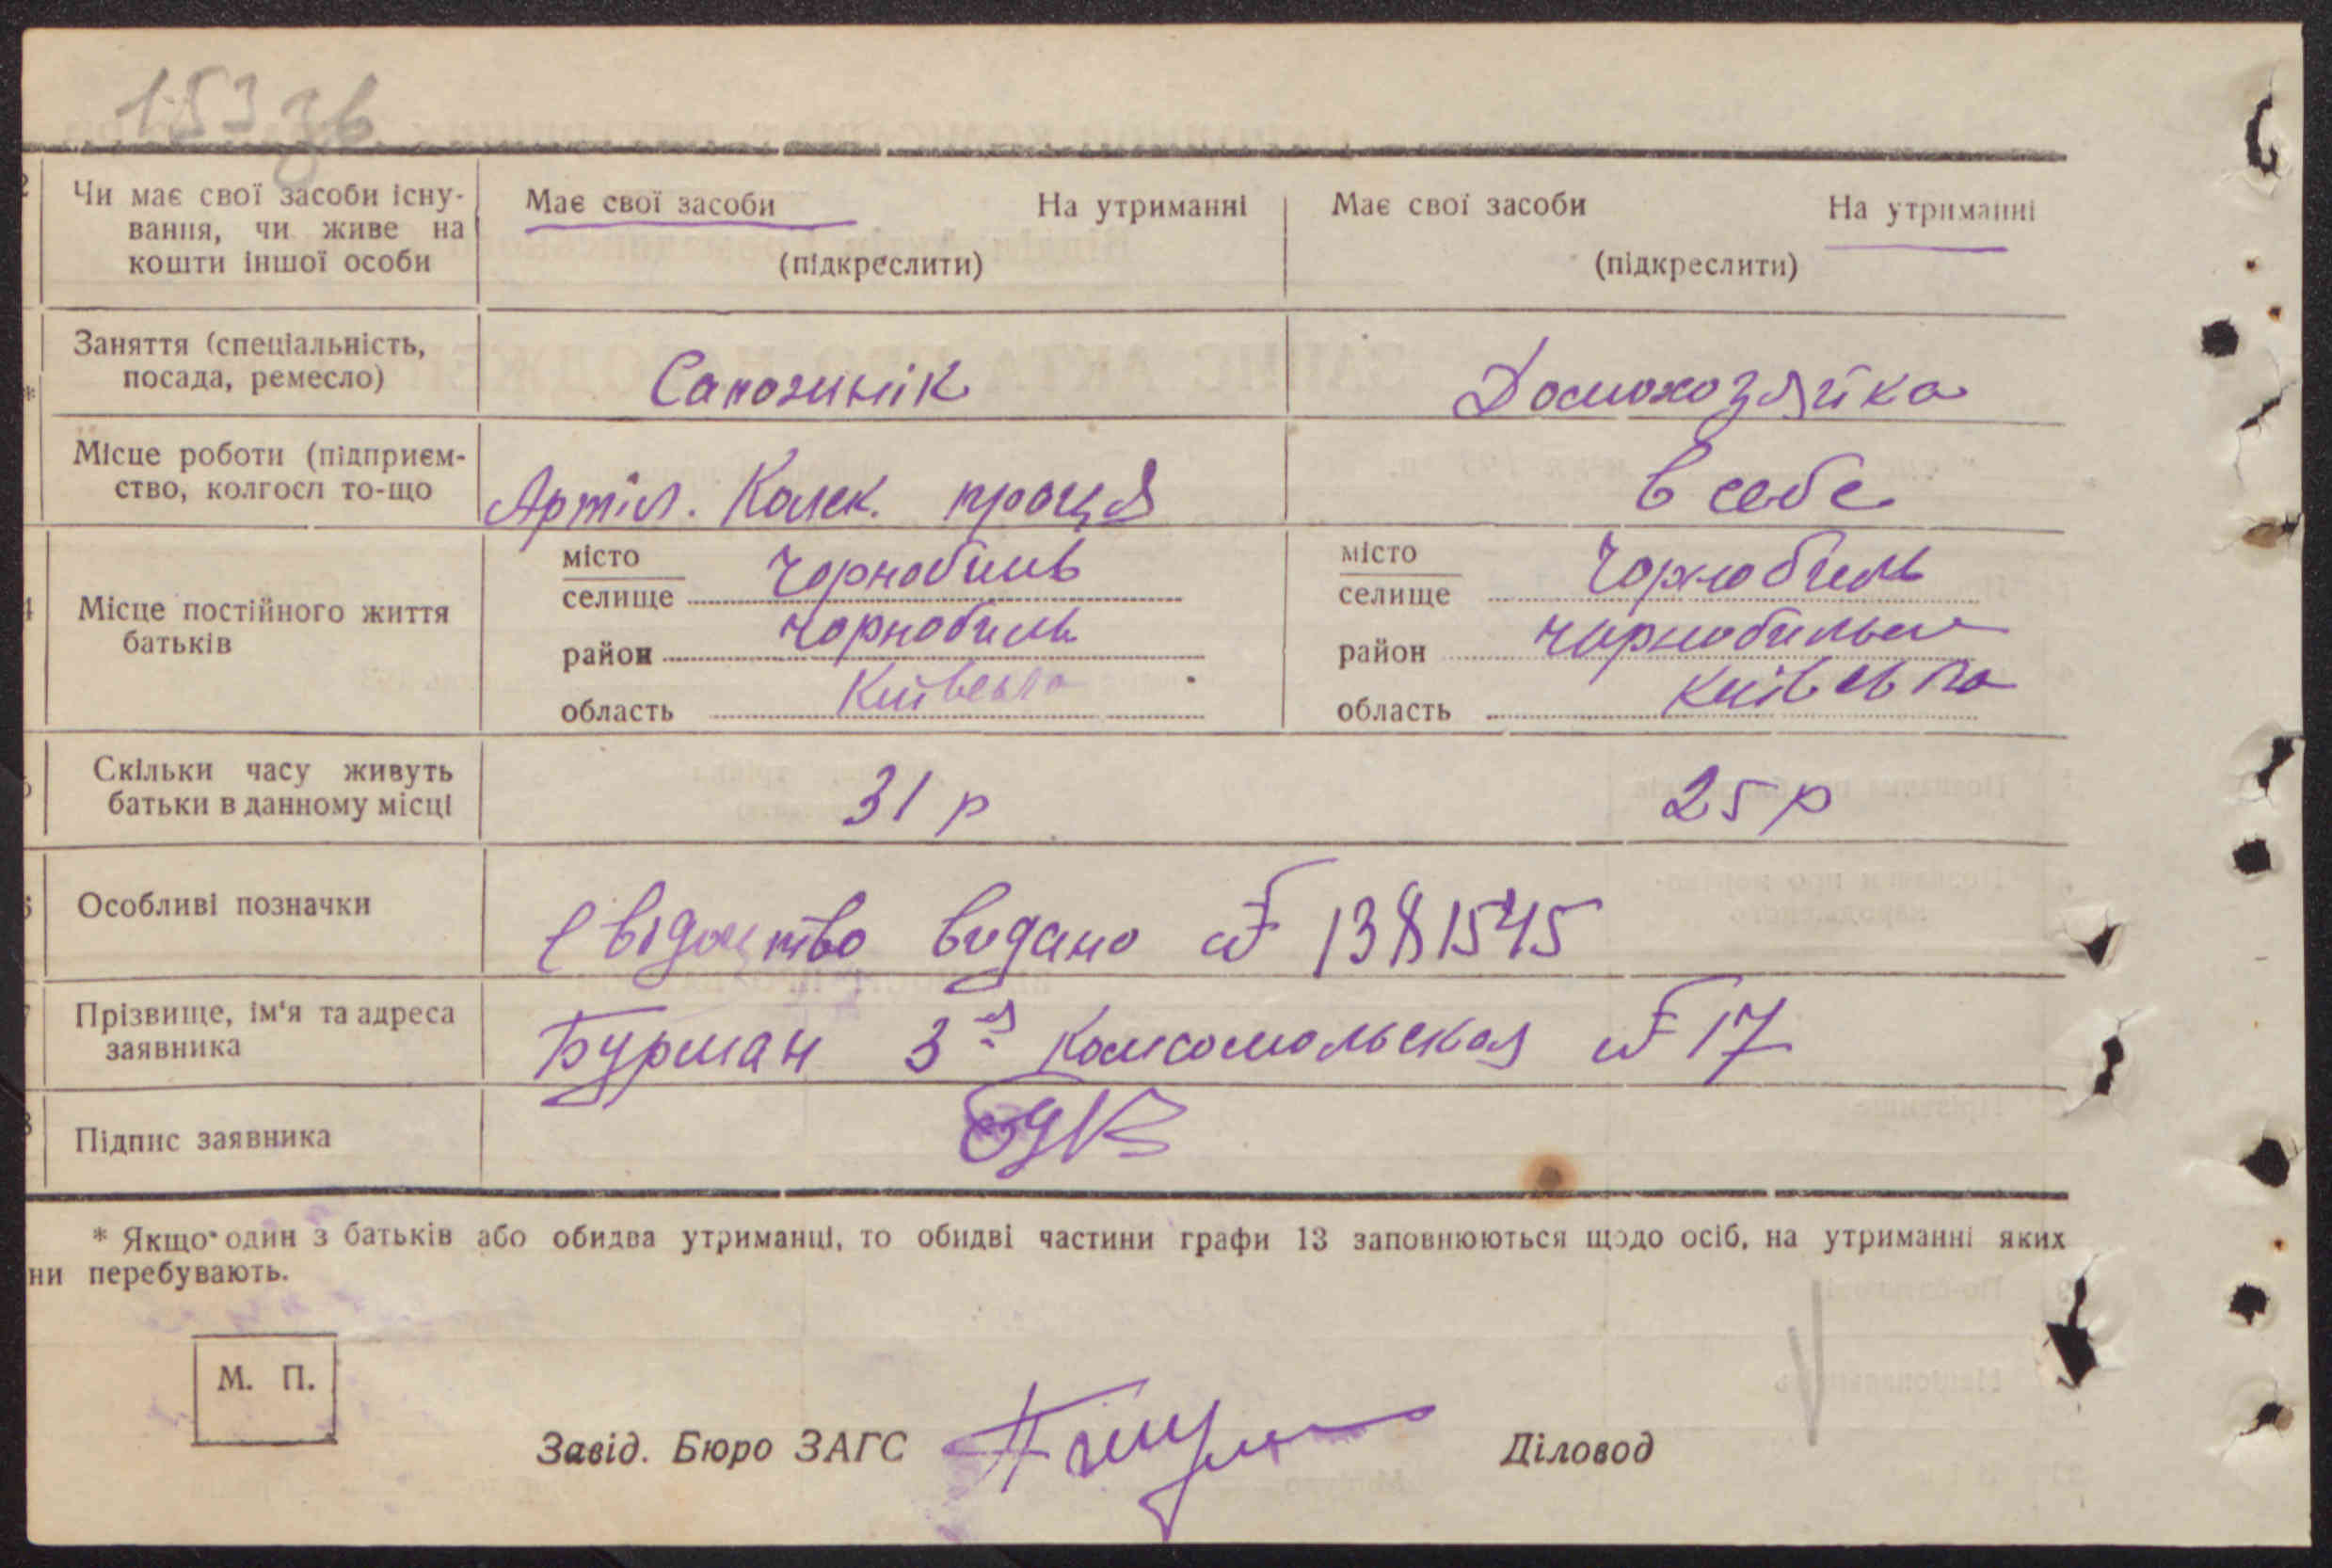 153 зв
2 Чи має свої засоби існу-
вання, чи живе на
кошти іншої особи
Має свої засоби На утриманні
(підкреслити)
Має свої засоби На утриманні
(підкреслити)
Заняття (спеціальність,
посада, ремесло)
Сапожнік
Домохозяйка
*
Місце роботи (підприєм-
ство, колгосп то-що
Артіл. Колек. праця
в себе
4 Місце постійного життя
батьків
місто
селище Чорнобиль
район Чорнобиль
область Київська
місто
селище Чорнобиль
район Чорнобильск
область Київська
Скільки часу живуть
батьки в данному місці
31 р
25 р
Особливі позначки
Свідоцтво видано № 1381545
Прізвище, ім'я та адреса
заявника
Бурман 3-я Комсомольская № 17
8 Підпис заявника
* Якщо один з батьків або обидва утриманці, то обидві частини графи 13 заповнюються щодо осіб, на утриманні яких
ни перебувають.
М. П.
Завід. Бюро ЗАГС
Діловод